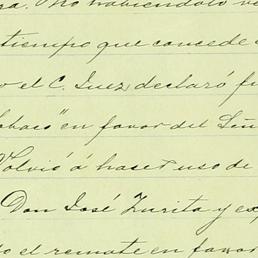 ra. No habiéndolo ve
tiempo que concede
o el C. Juez declaró f
abaco" en favor del Señ
Volvió á hacer uso de
Don José Zurita y ex
do el remate en favor